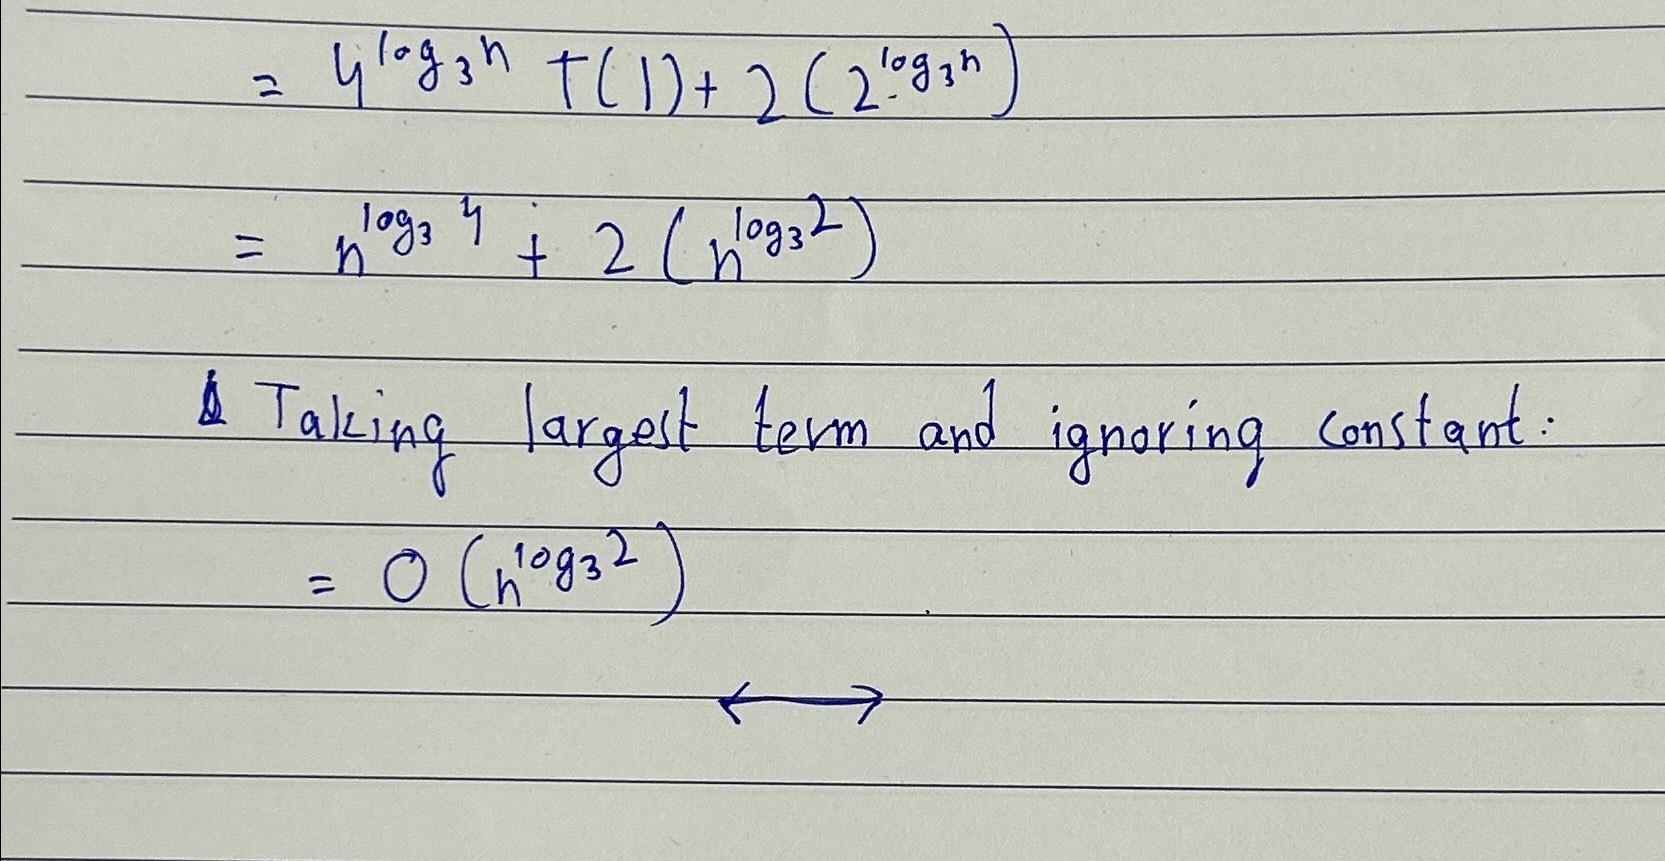 = 4^log₃n T(1) + 2(2^log₃n)
= n^log₃4 + 2(n^log₃2)
Taking largest term and ignoring constant:
= O(n^log₃2)